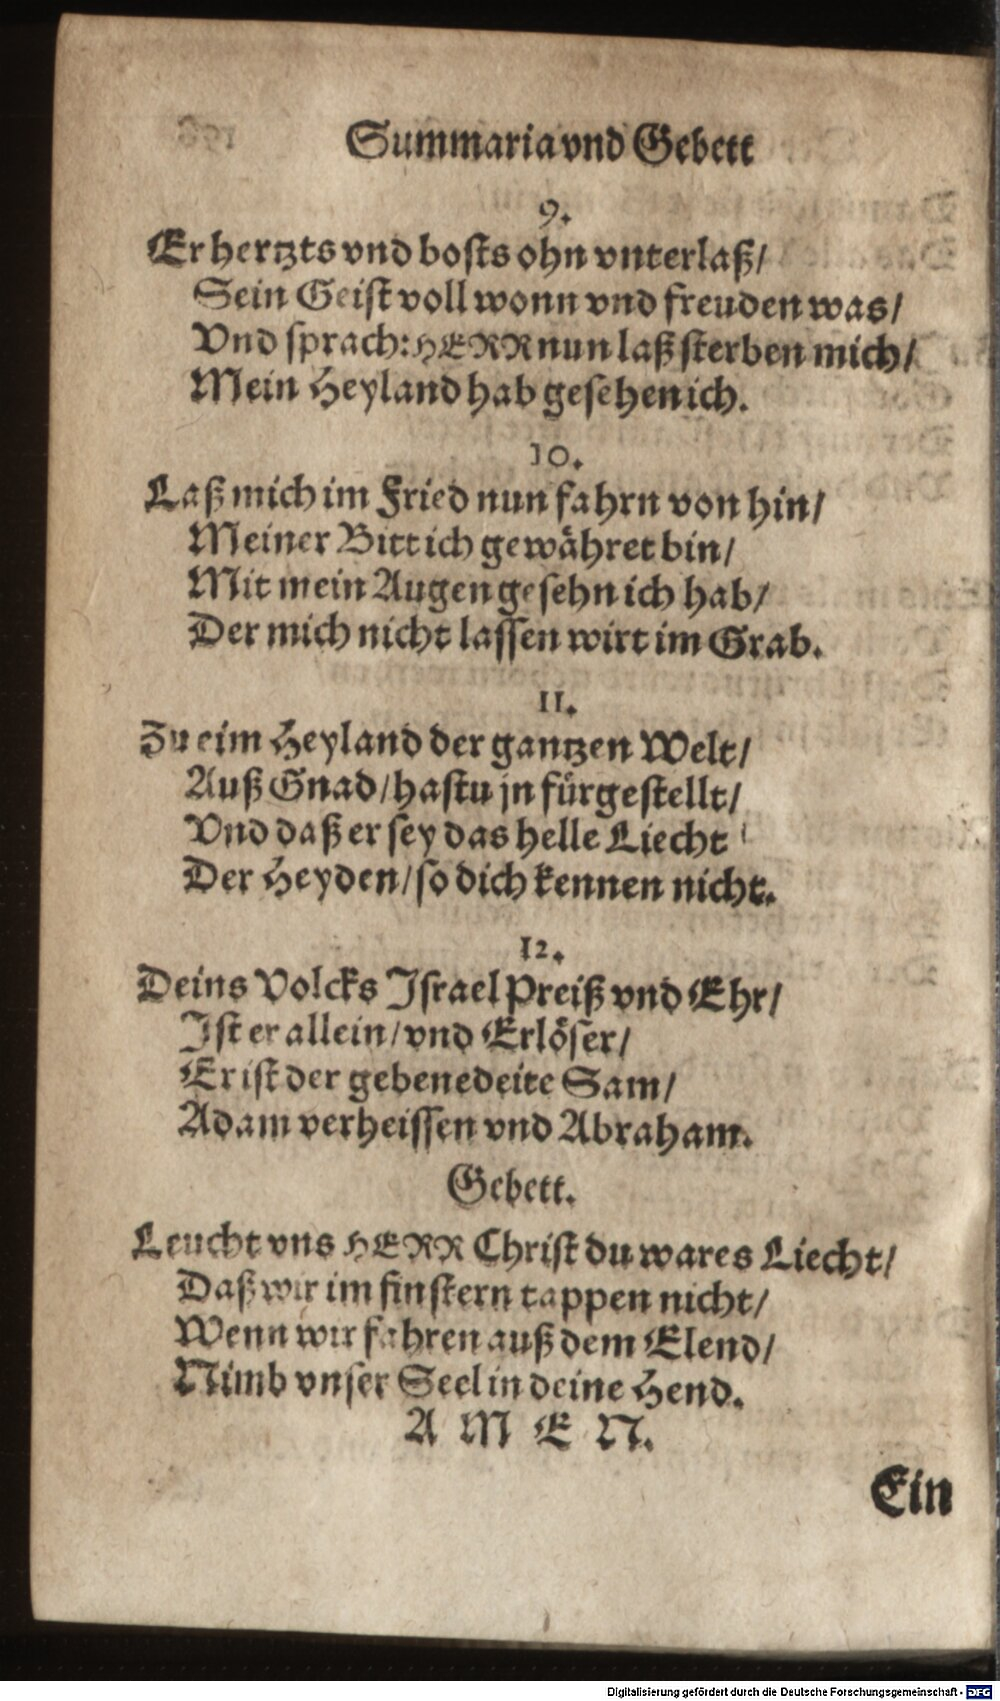 Summaria vnd Gebett
9.
Er hertzts vnd bosts ohn vnterlaß/
Sein Geist voll wonn vnd freuden was/
Vnd sprach: HERR nun laß sterben mich/
Mein Heyland hab gesehen ich.
10.
Laß mich im Fried nun fahrn von hin/
Meiner Bitt ich gewähret bin/
Mit mein Augen gesehn ich hab/
Der mich nicht lassen wirt im Grab.
11.
Zu eim Heyland der gantzen Welt/
Auß Gnad/ hastu jn fürgestellt/
Vnd daß er sey das helle Liecht
Der Heyden/ so dich kennen nicht.
12.
Deins Volcks Israel Preiß vnd Ehr/
Ist er allein/ vnd Erlöser/
Er ist der gebenedeite Sam/
Adam verheissen vnd Abraham.
Gebett.
Leucht vns HERR Christ du wares Liecht/
Daß wir im finstern tappen nicht/
Wenn wir fahren auß dem Elend/
Nimb vnser Seel in deine Hend.
A M E N.
Ein
Digitalisierung gefördert durch die Deutsche Forschungsgemeinschaft - DFG